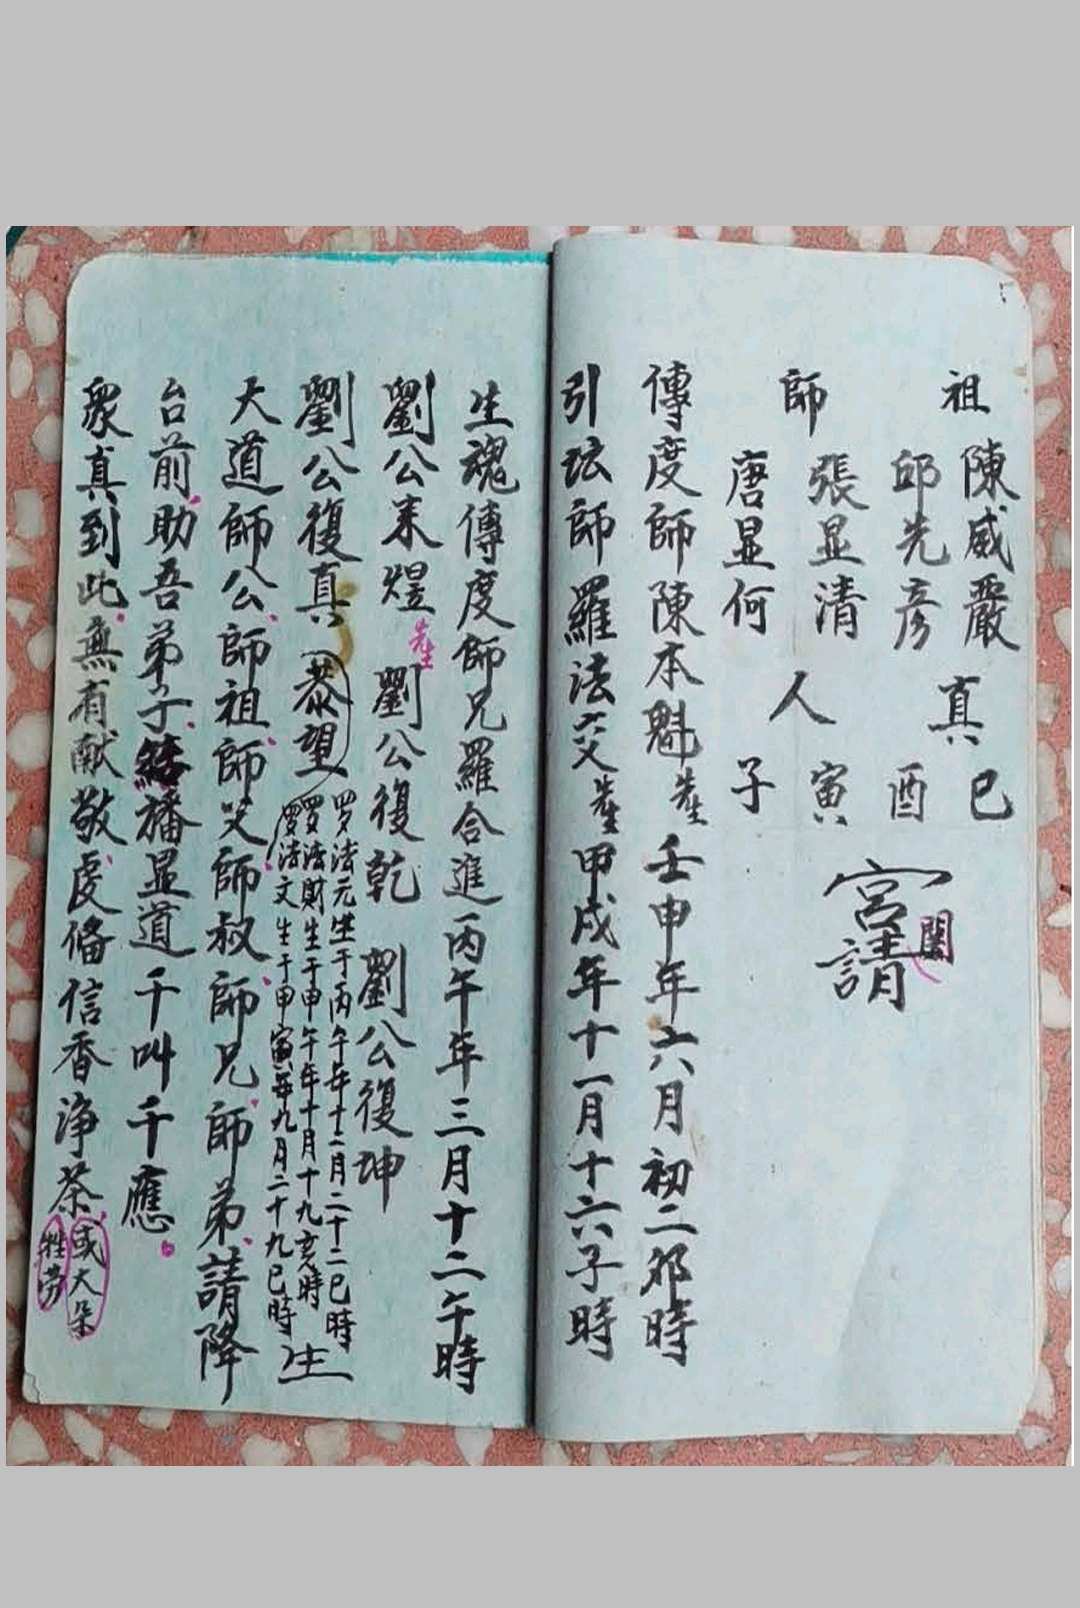 祖陳威嚴真巳
邱先彦酉
師張显清人寅
唐显何子
宮請
閣
傳度師陳本魁先生壬申年六月初二邜時
引坛師羅法交先生甲戌年十一月十六子時
生魂傳度師兄羅合進丙午年三月十二午時
劉公来煜先生劉公復乾劉公復坤
劉公復真
恭望
罗法元生于丙午年十二月二十二巳時
罗法財生于甲午年十月十九亥時
罗法文生于甲寅年九月二十九巳時
生
大道師公師祖師父師叔師兄師弟請降
台前助吾弟子播显道千叫千應
衆真到此無有献敬虔俻信香净茶
或大
牲